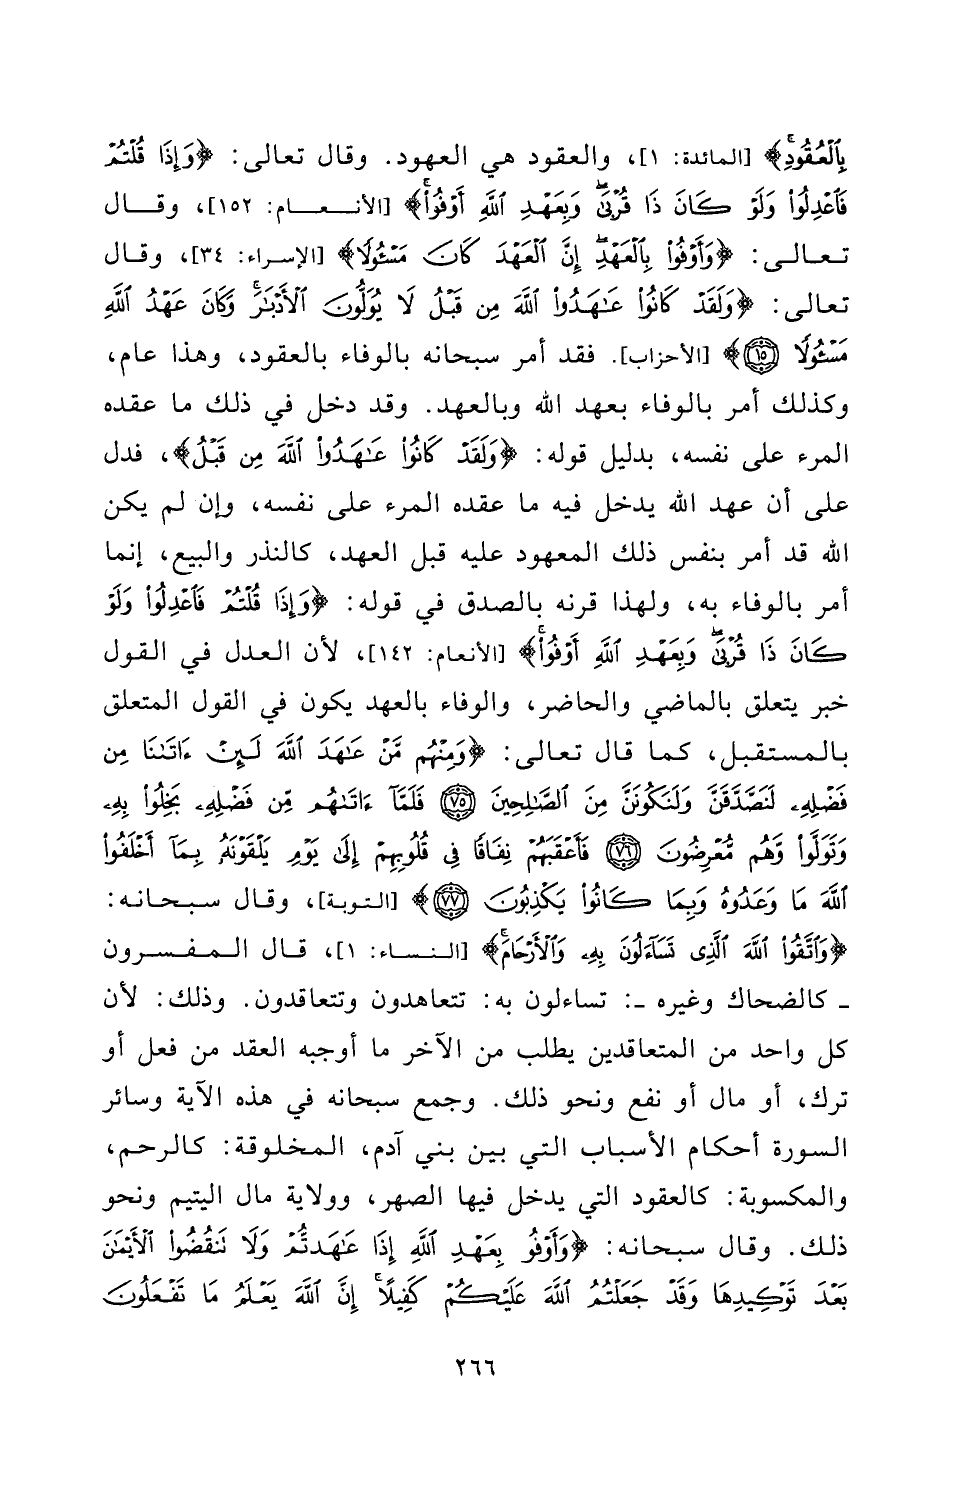 بِٱلْعُقُودِۚ﴾ [المائدة: ١]، والعقود هي العهود. وقال تعالى: ﴿وَإِذَا قُلْتُمْ
فَٱعْدِلُوا۟ وَلَوْ كَانَ ذَا قُرْبَىٰۖ وَبِعَهْدِ ٱللَّهِ أَوْفُوا۟ۚ﴾ [الأنـعـام: ١٥٢]، وقـال
تـعـالـى: ﴿وَأَوْفُوا۟ بِٱلْعَهْدِۖ إِنَّ ٱلْعَهْدَ كَانَ مَسْـُٔولًا﴾ [الإسراء: ٣٤]، وقـال
تعالى: ﴿وَلَقَدْ كَانُوا۟ عَـٰهَدُوا۟ ٱللَّهَ مِن قَبْلُ لَا يُوَلُّونَ ٱلْأَدْبَـٰرَۚ وَكَانَ عَهْدُ ٱللَّهِ
مَسْـُٔولًا ١٥﴾ [الأحزاب]. فقد أمر سبحانه بالوفاء بالعقود، وهذا عام،
وكذلك أمر بالوفاء بعهد الله وبالعهد. وقد دخل في ذلك ما عقده
المرء على نفسه، بدليل قوله: ﴿وَلَقَدْ كَانُوا۟ عَـٰهَدُوا۟ ٱللَّهَ مِن قَبْلُ﴾، فدل
على أن عهد الله يدخل فيه ما عقده المرء على نفسه، وإن لم يكن
الله قد أمر بنفس ذلك المعهود عليه قبل العهد، كالنذر والبيع، إنما
أمر بالوفاء به، ولهذا قرنه بالصدق في قوله: ﴿وَإِذَا قُلْتُمْ فَٱعْدِلُوا۟ وَلَوْ
كَانَ ذَا قُرْبَىٰۖ وَبِعَهْدِ ٱللَّهِ أَوْفُوا۟ۚ﴾ [الأنعام: ١٤٢]، لأن العدل في القول
خبر يتعلق بالماضي والحاضر، والوفاء بالعهد يكون في القول المتعلق
بالمستقبل، كما قال تعالى: ﴿وَمِنْهُم مَّنْ عَـٰهَدَ ٱللَّهَ لَئِنْ ءَاتَىٰنَا مِن
فَضْلِهِۦ لَنَصَّدَّقَنَّ وَلَنَكُونَنَّ مِنَ ٱلصَّـٰلِحِينَ ٧٥ فَلَمَّآ ءَاتَىٰهُم مِّن فَضْلِهِۦ بَخِلُوا۟ بِهِۦ
وَتَوَلَّوا۟ وَّهُم مُّعْرِضُونَ ٧٦ فَأَعْقَبَهُمْ نِفَاقًا فِى قُلُوبِهِمْ إِلَىٰ يَوْمِ يَلْقَوْنَهُۥ بِمَآ أَخْلَفُوا۟
ٱللَّهَ مَا وَعَدُوهُ وَبِمَا كَانُوا۟ يَكْذِبُونَ ٧٧﴾ [التوبة]، وقال سبحانه:
﴿وَٱتَّقُوا۟ ٱللَّهَ ٱلَّذِى تَسَآءَلُونَ بِهِۦ وَٱلْأَرْحَامَۚ﴾ [النساء: ١]، قال المفسرون
ـ كالضحاك وغيره ـ: تساءلون به: تتعاهدون وتتعاقدون. وذلك: لأن
كل واحد من المتعاقدين يطلب من الآخر ما أوجبه العقد من فعل أو
ترك، أو مال أو نفع ونحو ذلك. وجمع سبحانه في هذه الآية وسائر
السورة أحكام الأسباب التي بين بني آدم، المخلوقة: كالرحم،
والمكسوبة: كالعقود التي يدخل فيها الصهر، وولاية مال اليتيم ونحو
ذلك. وقال سبحانه: ﴿وَأَوْفُوا۟ بِعَهْدِ ٱللَّهِ إِذَا عَـٰهَدتُّمْ وَلَا تَنقُضُوا۟ ٱلْأَيْمَـٰنَ
بَعْدَ تَوْكِيدِهَا وَقَدْ جَعَلْتُمُ ٱللَّهَ عَلَيْكُمْ كَفِيلًاۚ إِنَّ ٱللَّهَ يَعْلَمُ مَا تَفْعَلُونَ
٢٦٦